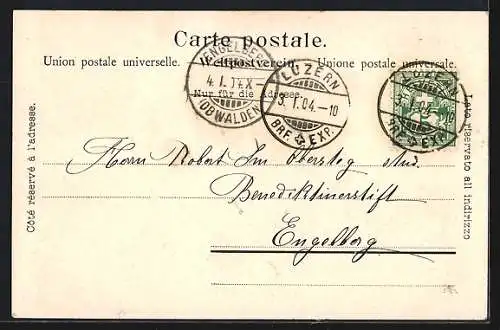 Carte postale.
Union postale universelle. Weltpostverein. Unione postale universale.
Nur für die Adresse.
ENGELBERG
4. I. 04. X
(OBWALDEN)
LUZERN
3. I. 04. – 10
BRF. EXP.
LUZERN
3. I. 04. – 10
BRF. EXP.
Côté réservé à l'adresse.
Lato riservato all indirizzo
Herrn Robert Im Obersteg stud.
Benediktinerstift
Engelberg